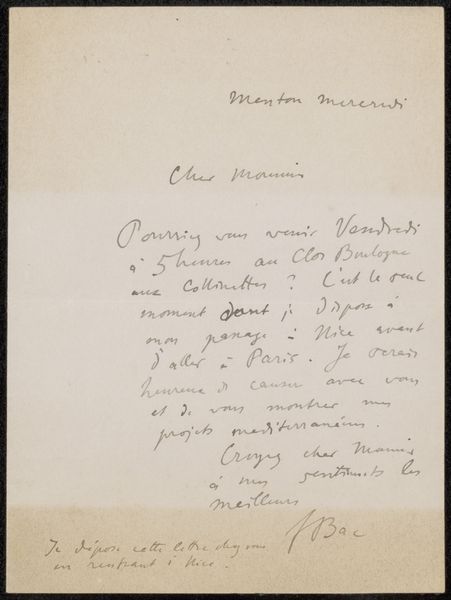 Menton mercredi
Cher Monsieur
Pourriez vous venir Vendredi
à 5 heures au Clos Boulogne
aux Collinettes ? C'est le seul
moment dont je dispose à
mon passage à Nice avant
d'aller à Paris. Je serais
heureux de causer avec vous
et de vous montrer mes
projets méditerranéens.
Croyez cher Monsieur
à mes sentiments les
meilleurs
FBac
Je dépose cette lettre chez vous
en rentrant à Nice.